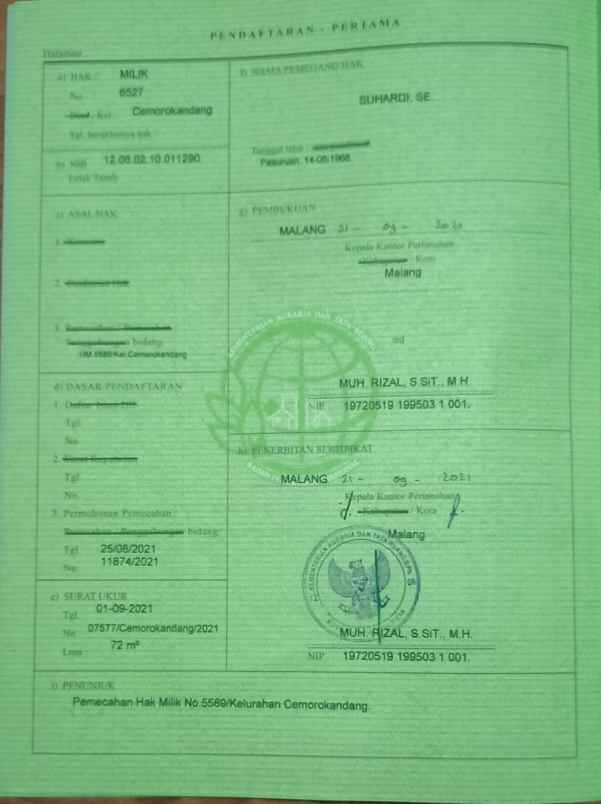 PENDAFTARAN - PERTAMA
Halaman
a) HAK : MILIK
No. 6527
Desa/ Kel Cemorokandang
Tgl. berakhirnya hak
b) NIB 12.08.02.10.011290.
Letak Tanah
c) ASAL HAK
1. Konversi
2. Pemberian Hak
3. Pemecahan / Pemisahan
Penggabungan bidang
HM.5589/Kel.Cemorokandang
d) DASAR PENDAFTARAN
1. Daftar Isian
Tgl
No.
2. Surat Keputusan
Tgl
No.
3. Permohonan Pemecahan /
Pemisahan / Penggabungan bidang
Tgl 25/08/2021
No. 11874/2021
e) SURAT UKUR
Tgl 01-09-2021
No 07577/Cemorokandang/2021
Luas 72 m²
f) NAMA PEMEGANG HAK
SUHARDI, SE
Tanggal lahir /
Pasuruan, 14-05-1968
g) PEMBUKUAN
MALANG 21 - 09 - 2021
Kepala Kantor Pertanahan
Kabupaten / Kota
Malang
ttd
MUH. RIZAL, S.SiT., M.H.
NIP 19720519 199503 1 001.
h) PENERBITAN SERTIPIKAT
MALANG 21 - 09 - 2021
Kepala Kantor Pertanahan
Kabupaten / Kota
Malang
MUH. RIZAL, S.SiT., M.H.
NIP 19720519 199503 1 001.
i) PENUNJUK
Pemecahan Hak Milik No.5589/Kelurahan Cemorokandang.
KEMENTERIAN AGRARIA DAN TATA RUANG